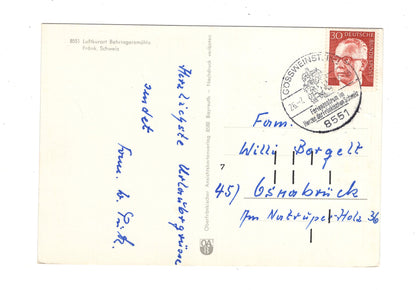 8551 Luftkurort Behringersmühle
Fränk. Schweiz
Herzlichste Urlaubsgrüsse
sendet
Oberfränkischer Ansichtskartenverlag, Bayreuth - Nachdruck verboten
30 DEUTSCHE
GÖSSWEINSTEIN
Ferienzentrum im
Herzen der Fränkischen Schweiz
8551
Fam.
Willy Bargelt
7
45) Osnabrück
Am Natruper-Holz 36